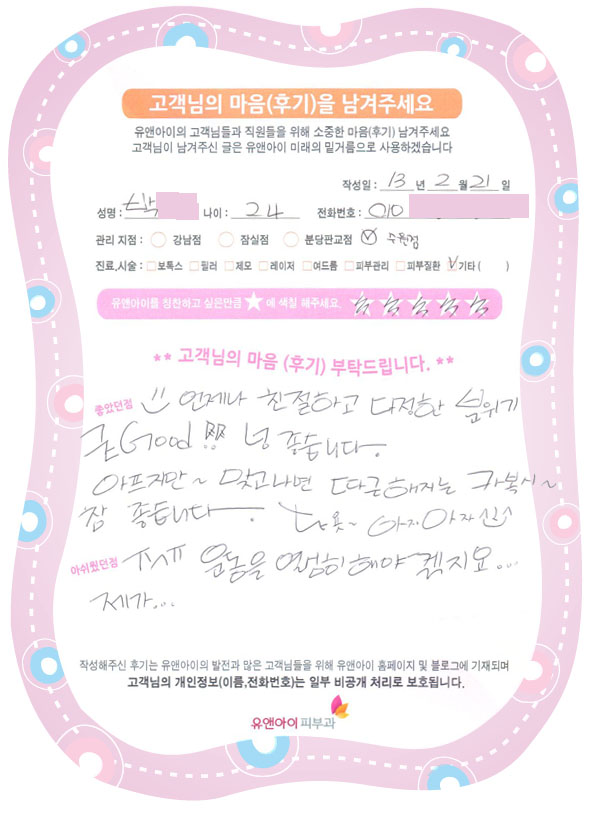 고객님의 마음(후기)을 남겨주세요
유앤아이의 고객님들과 직원들을 위해 소중한 마음(후기) 남겨주세요
고객님이 남겨주신 글은 유앤아이 미래의 밑거름으로 사용하겠습니다
작성일 : 13 년 2 월 21 일
성명 : 박 나이 : 24 전화번호 : 010
관리 지점 : 강남점 잠실점 분당판교점 수원점
진료,시술 : 보톡스 필러 제모 레이저 여드름 피부관리 피부질환 기타 ( )
유앤아이를 칭찬하고 싶은만큼 ★ 에 색칠 해주세요. ★★★★★
** 고객님의 마음 (후기) 부탁드립니다. **
좋았던점 언제나 친절하고 다정한 분위기
굳 Good !!! 넘 좋습니다.
아프지만~ 맞고나면 따끈해지는 카복시~
참 좋습니다. 아자아자
아쉬웠던점 ㅠㅅㅠ 운동을 열심히 해야 겠지요...
제가...
작성해주신 후기는 유앤아이의 발전과 많은 고객님들을 위해 유앤아이 홈페이지 및 블로그에 기재되며
고객님의 개인정보(이름,전화번호)는 일부 비공개 처리로 보호됩니다.
유앤아이피부과